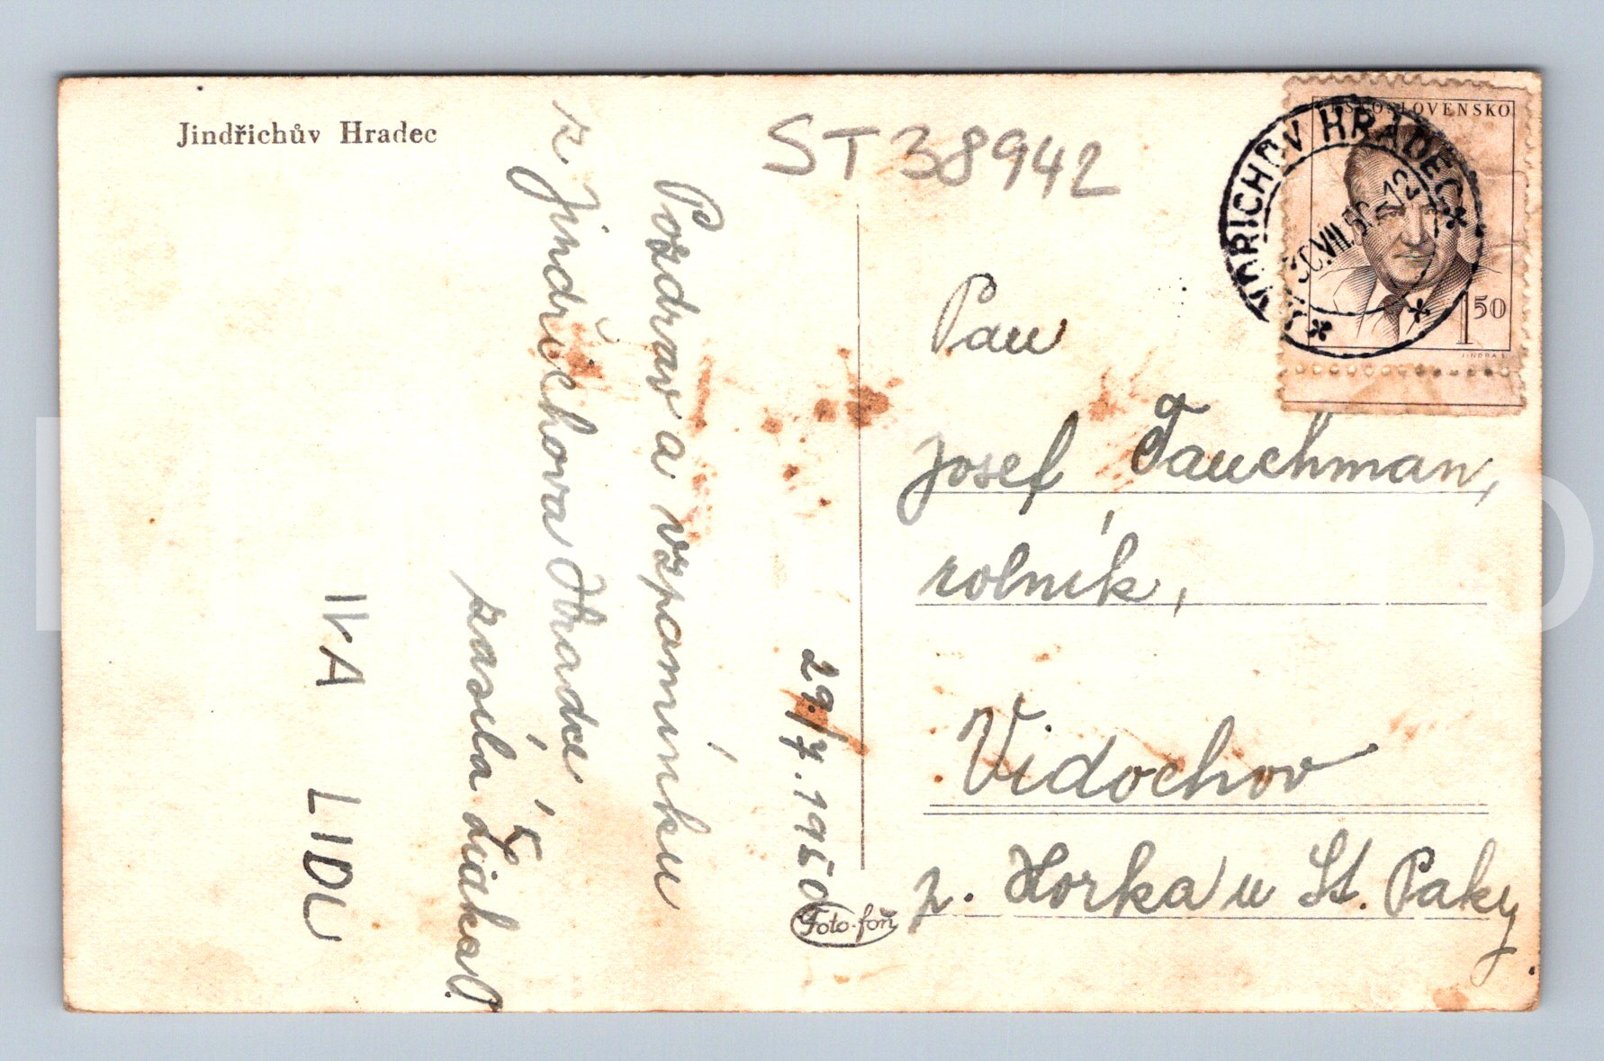 Jindřichův Hradec
ST 38942
ČESKOSLOVENSKO
JINDŘICHŮV HRADEC
30.VII.50-12
1 50
JINDRA S.
Pozdrav a vzpomínku
z Jindřichova Hradce
zasílá
IVA LIDU
29/7. 1950
Foto-foň
Pan
Josef Fauchman,
rolník,
Vidochov
p. Horka u St. Paky